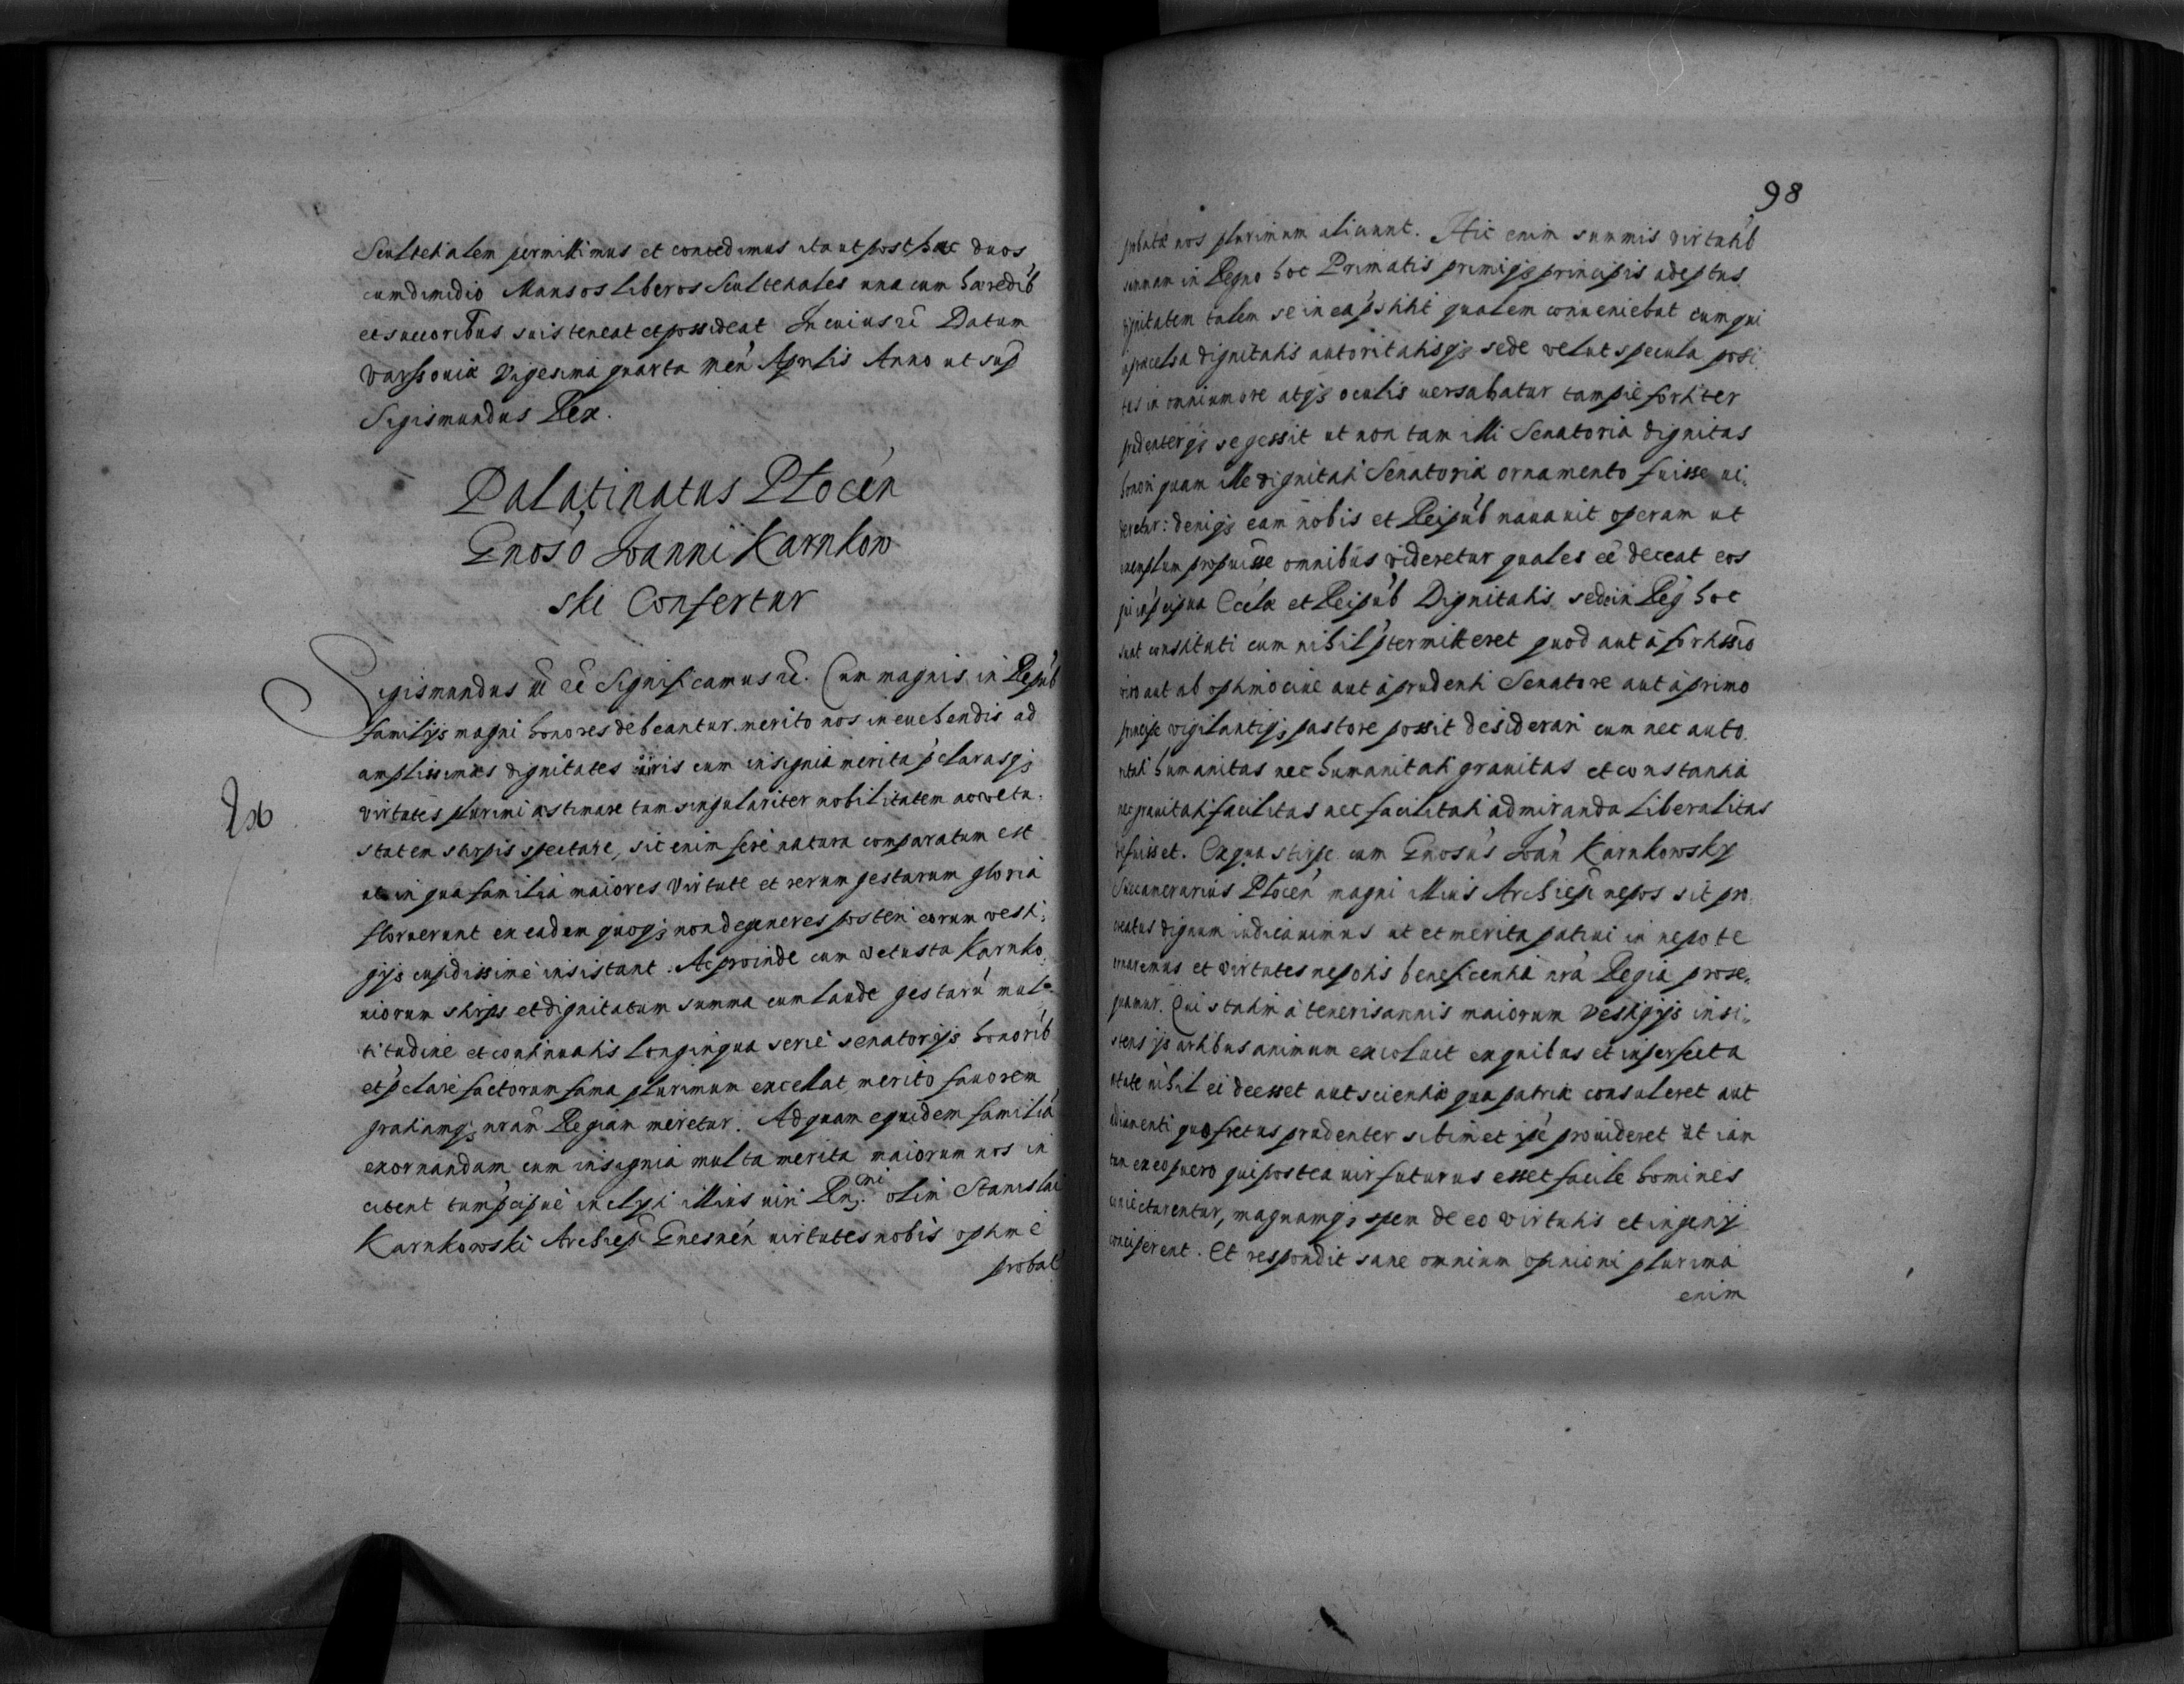 Scultetialem permittimus et concedimus ita ut post hac duos
cum dimidio Mansos liberos Scultetiales una cum haeredib
et succoribus suis teneat et possideat In cuius rei Datum
Varssouiæ Vigesima quarta men Aprilis Anno ut sup
Sigismundus Rex.
Palatinatus Plocen
Gnoso Joanni Karnkow
ski Confertur
Sigismundus etc etc Significamus etc. Cum magnis in Repub
familijs magni honores debeantur merito nos in euehendis ad
amplissimas dignitates uiris cum insignia merita pclarasq3
virtutes plurimi æstimare tam singulariter nobilitatem ac vetu
statem stirpis spectare, sic enim fere natura comparatum est
ut in qua familia maiores virtute et rerum gestarum gloria
floruerunt ex eadem quoq3 non degeneres posteri eorum vesti
gijs cupidissime insistant. Ac proinde cum vetusta Karnko
uiorum stirps et dignitatum summa cum laude gestaru mul
titudine et continuatis longinqua serie senatorijs honorib
et pclare factorum fama plurimum excellat merito fauorem
gratiamq3 nram Regiam meretur. Ad quam equidem familia
exornandam cum insignia multa merita maiorum nos in
citent tum pcipue inclyti illius uiri Rndmi olim Stanislai
Karnkowski Archiepi Gnesnen uirtutes nobis optime
probat
98
probatæ nos plurimum aliciunt. Hic enim summis virtutib
summam in Regno hoc Primatis primiq3 principis adeptus
dignitatem talem se in ea pstitit qualem conueniebat eum qui
a præcelsa dignitatis autoritatisq3 sede velut specula posi
tus in omnium ore atq3 oculis uersabatur tam pie fortiter
prudenterq3 se gessit ut non tam illi Senatoria dignitas
honori quam ille dignitati Senatoriæ ornamento fuisse ui
deretur: deniq3 eam nobis et Reipub nauauit operam ut
exemplum proposuisse omnibus videretur quales ee deceat eos
qui in pcipua Eccla et Reipub Dignitatis sede in Reg hoc
sunt constituti cum nihil ptermitteret quod aut a fortissio
viro aut ab optimo ciue aut a prudenti Senatore aut a primo
principe vigilantiq3 pastore possit desiderari cum nec auto
ritati humanitas nec humanitati grauitas et constantia
nec grauitati facilitas nec facilitati admiranda liberalitas
defuisset. Ex qua stirpe cum Gnosus Joan Karnkowsky
Succamerarius Plocen magni illius Archiepi nepos sit pro
creatus dignum iudicauimus ut et merita patrui in nepote
ornaremus et virtutes nepotis beneficentia nra Regia prose
quamur. Qui statim a teneris annis maiorum vestigijs insi
stens ijs artibus animum excoluit ex quibus et in perfecta
ætate nihil ei deesset aut scientiæ qua patriæ consuleret aut
adiumenti quo fretus prudenter sibimet ipse prouideret ut iam
tum ex eo puero qui postea uir futurus esset facile homines
coniectarentur, magnamq3 spem de eo virtutis et ingenij
conciperent. Et respondit sane omnium opinioni plurima
enim